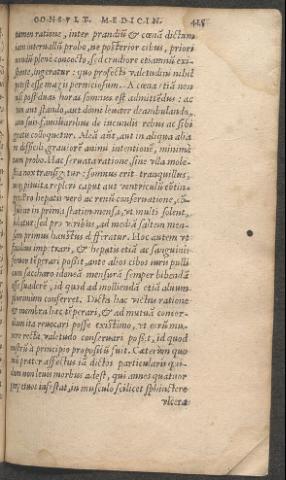 CONSVLT. MEDICIN. 428
tamen ratione, inter prandiũ & cœnã dictum
iam interuallũ probo, ne posterior cibus, priori
nondũ plenè concocto, sed crudiore etiamnũ exi-
stente, ingeratur: quo profectò valetudini nihil
potest esse magis perniciosum. A cœna etiã non
nisi post duas horas somnus est admittẽdus: ac
tum aut stando, aut domi leuiter deambulando,
aut cum familiaribus de iucundis rebus ac sibi
gratis colloquetur. Aleã aũt, aut in aliqua alia
re difficili, grauiorẽ animi intentionẽ, minimè
tum probo. Hac seruata ratione, sine vlla mole-
stia nox transigetur: somnus erit tranquillus,
nec pituita replens caput aut ventriculũ cõtin-
get
pro hepatis verò ac renũ conseruatione,
in prima statim mensa, vt multi solent,
sed pro viribus, ad mediã saltem men-
sam primus haustus differatur. Hoc autem vt
impetrari, & hepatis etiã ac sanguinis
tẽperari possit, ante alios cibos iuris pulli
cum saccharo idoneã mensurã semper bibendã
esse suaderẽ, id quod ad molliendã etiã aluum
plurimum conferret. Dicta hac victus ratione
& membra hæc tẽperari, & ad mutuã concor-
diam ita reuocari posse existimo, vt eorũ mu-
nere recta valetudo conseruari possit, id quod
nostrũ à principio propositũ fuit. Cæterùm quo-
niam præter affectus iã dictos particularis qui-
dam non leuis morbus adest, qui annos quatuor
infestat, in musculo scilicet sphinctere
vlcera